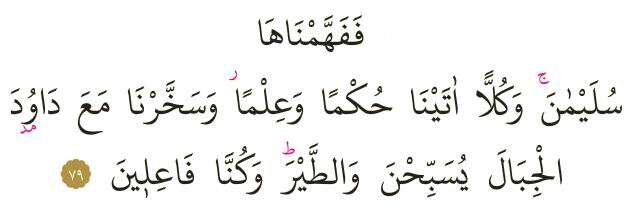 فَفَهَّمْنَاهَا
سُلَيْمٰنَۚ وَكُلًّا اٰتَيْنَا حُكْمًا وَعِلْمًاۘ وَسَخَّرْنَا مَعَ دَاوُدَ
الْجِبَالَ يُسَبِّحْنَ وَالطَّيْرَۜ وَكُنَّا فَاعِل۪ينَ ٧٩